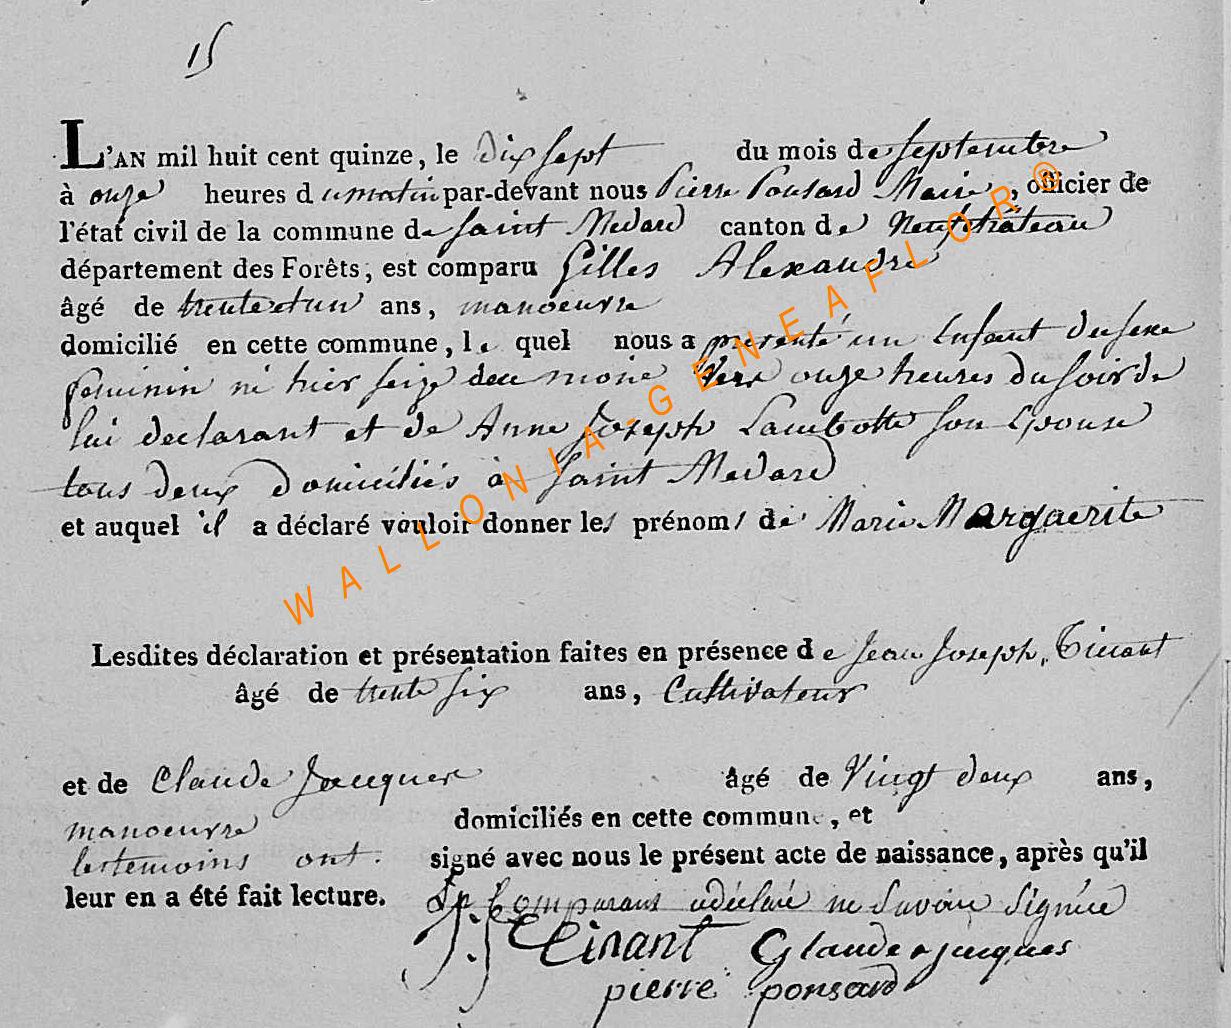 15
L'AN mil huit cent quinze, le dix sept du mois de septembre
à onze heures du matin par-devant nous Pierre Ponsard Maire, officier de
l'état civil de la commune de Saint Medard canton de Neufchâteau
département des Forêts, est comparu Gilles Alexandre
âgé de trente et un ans, manoeuvre
domicilié en cette commune, le quel nous a presenté un Enfant du sexe
feminin né hier seize du mois vers onze heures du soir de
lui declarant et de Anne Joseph Lambotte son Epouse
tous deux Domiciliés à Saint Medard
et auquel il a déclaré vouloir donner les prénoms de Marie Marguerite
WALLONIA-GENEAFLOR®
Lesdites déclaration et présentation faites en présence de Jean Joseph Tinant
âgé de trente six ans, Cultivateur
et de Claude Jacques âgé de Vingt deux ans,
manoeuvre domiciliés en cette commune, et
les temoins ont signé avec nous le présent acte de naissance, après qu'il
leur en a été fait lecture. Le Comparant a déclaré ne Savoir Signer
J. J. Tinant Glaude jacques
pierre ponsard